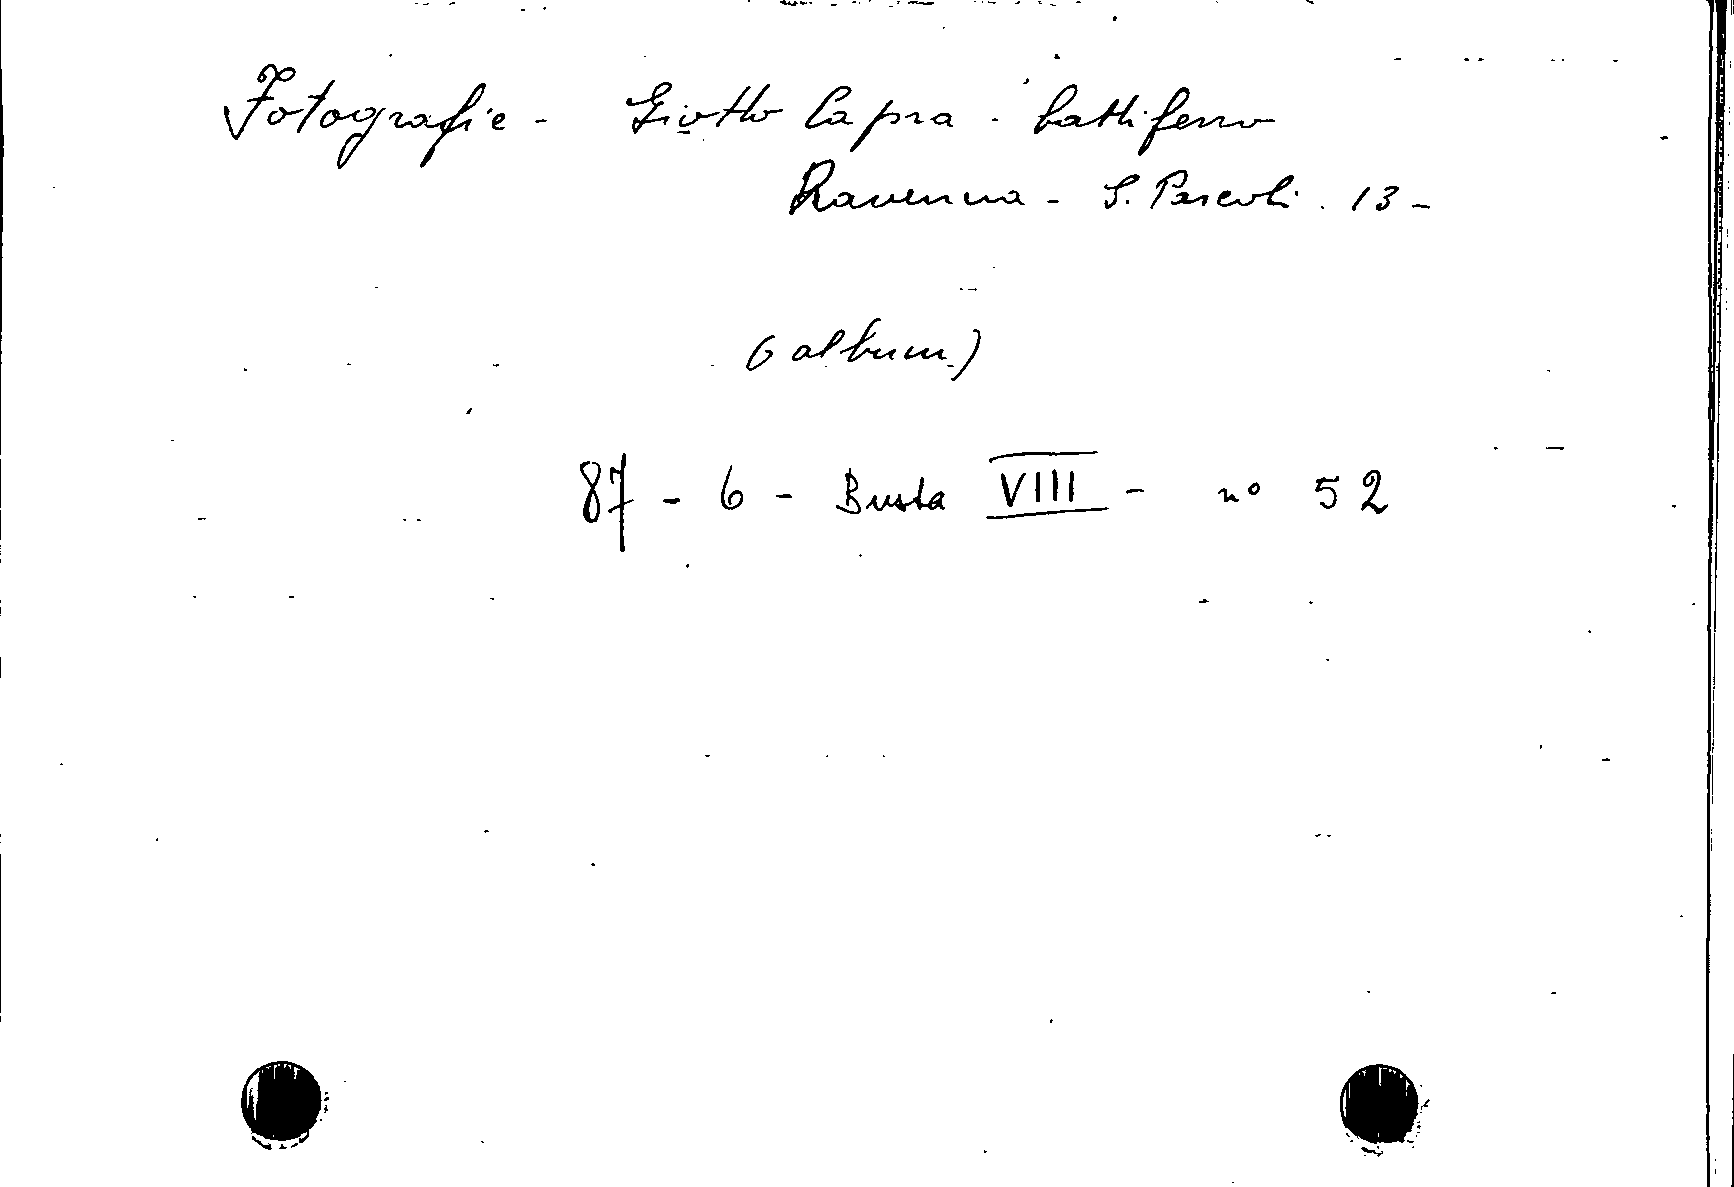 Fotografie - Giotto Capra - battiferro
Ravenna - G. Pascoli . 13 -
(album)
87 - 6 - Busta VIII - nº 52